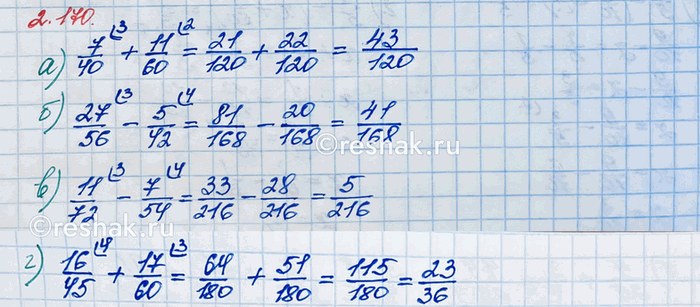 2.170.
а) 7/40 (3 + 11/60 (2 = 21/120 + 22/120 = 43/120
б) 27/56 (3 - 5/42 (4 = 81/168 - 20/168 = 41/168
©reshak.ru
в) 11/72 (3 - 7/54 (4 = 33/216 - 28/216 = 5/216
г) 16/45 (4 + 17/60 (3 = 64/180 + 51/180 = 115/180 = 23/36